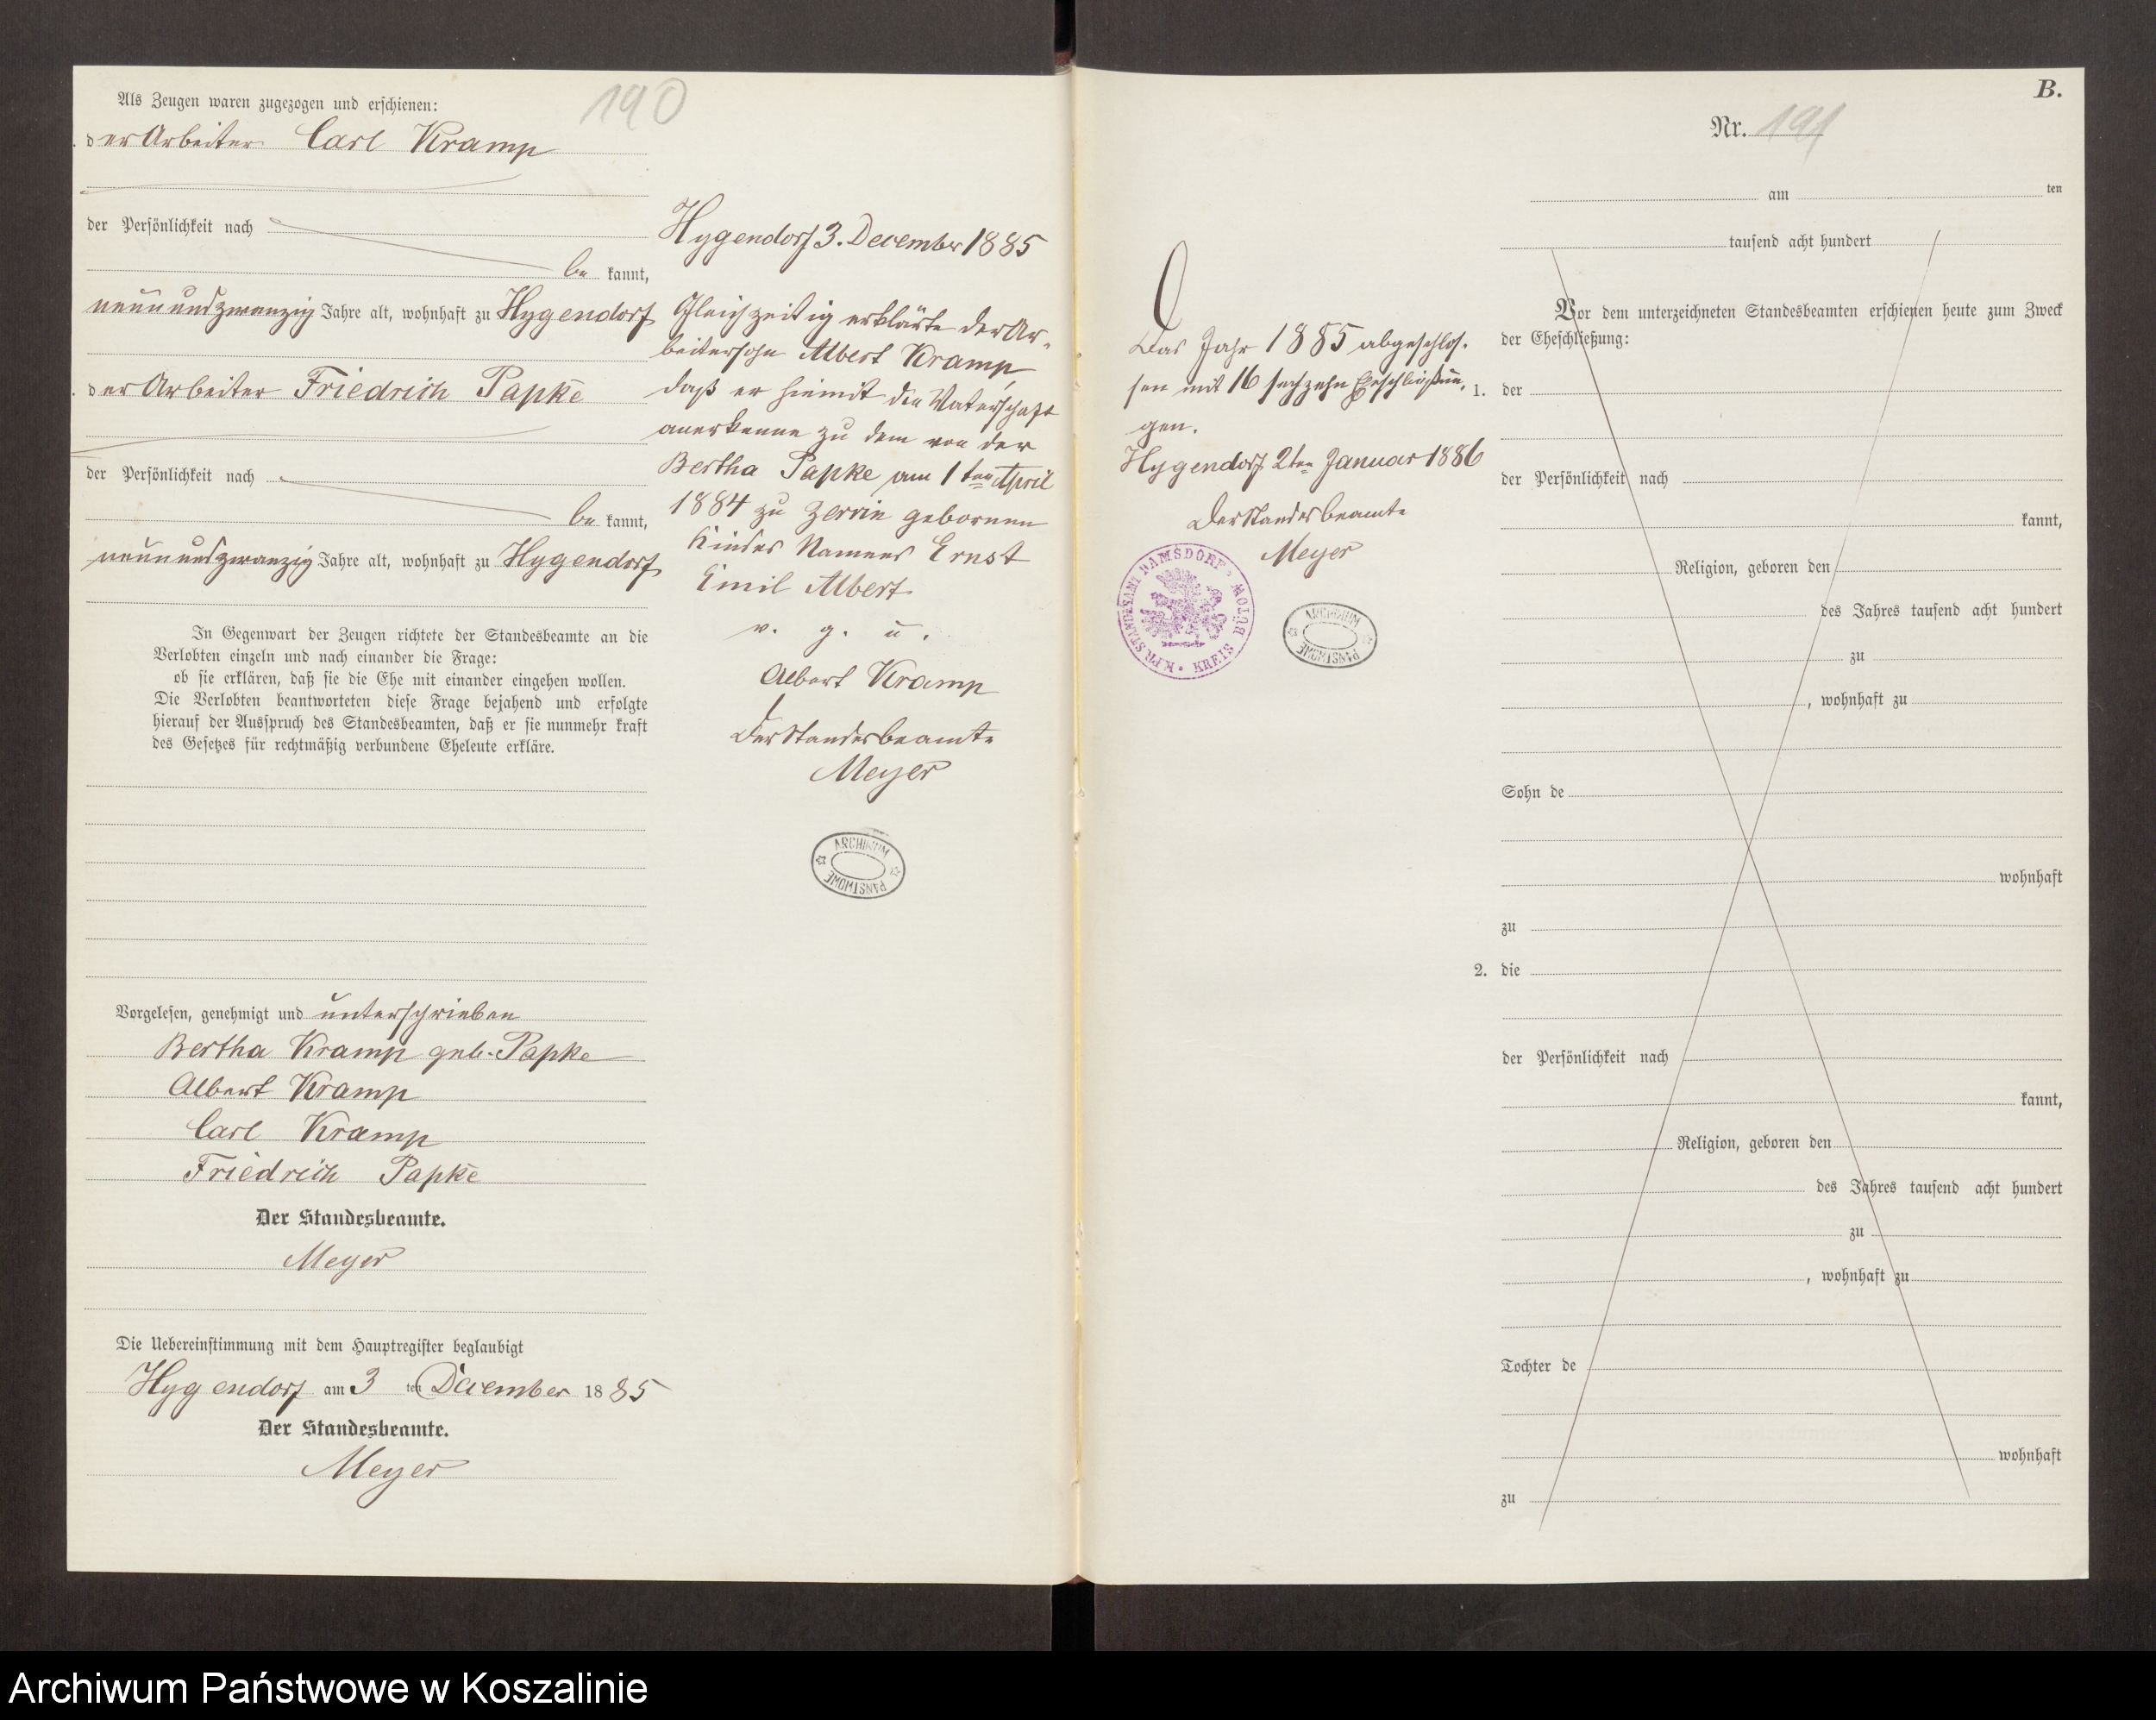 190
Als Zeugen waren zugezogen und erschienen:
der Arbeiter Carl Kramp
der Persönlichkeit nach
be kannt,
neunundzwanzig Jahre alt, wohnhaft zu Hygendorf
der Arbeiter Friedrich Papke
der Persönlichkeit nach
be kannt,
neunundzwanzig Jahre alt, wohnhaft zu Hygendorf
In Gegenwart der Zeugen richtete der Standesbeamte an die
Verlobten einzeln und nach einander die Frage:
ob sie erklären, daß sie die Ehe mit einander eingehen wollen.
Die Verlobten beantworteten diese Frage bejahend und erfolgte
hierauf der Ausspruch des Standesbeamten, daß er sie nunmehr kraft
des Gesetzes für rechtmäßig verbundene Eheleute erkläre.
Vorgelesen, genehmigt und unterschrieben
Bertha Kramp geb. Papke
Albert Kramp
Carl Kramp
Friedrich Papke
Der Standesbeamte.
Meyer
Die Uebereinstimmung mit dem Hauptregister beglaubigt
Hygendorf am 3 ten December 1885
Der Standesbeamte.
Meyer
Hygendorf 3. December 1885
Gleichzeitig erklärte der Ar-
beitersohn Albert Kramp,
daß er hiemit die Vaterschaft
anerkenne zu dem von der
Bertha Papke am 1ten April
1884 zu Zerrin gebornen
Kindes Namens Ernst
Emil Albert.
v. g. u.
Albert Kramp
Der Standesbeamte
Meyer
ARCHIWUM
PAŃSTWOWE
Das Jahr 1885 abgeschlos-
sen mit 16 sechzehn Eheschließun-
gen.
Hygendorf 2ten Januar 1886
Der Standesbeamte
Meyer
K.PR.STANDESAMT DAMSDORF * KREIS BÜTOW
ARCHIWUM
PAŃSTWOWE
B.
Nr. 191
am ten
tausend acht hundert
Vor dem unterzeichneten Standesbeamten erschienen heute zum Zweck
der Eheschließung:
1. der
der Persönlichkeit nach
kannt,
Religion, geboren den
des Jahres tausend acht hundert
zu
, wohnhaft zu
Sohn de
wohnhaft
zu
2. die
der Persönlichkeit nach
kannt,
Religion, geboren den
des Jahres tausend acht hundert
zu
, wohnhaft zu
Tochter de
wohnhaft
zu
Archiwum Państwowe w Koszalinie